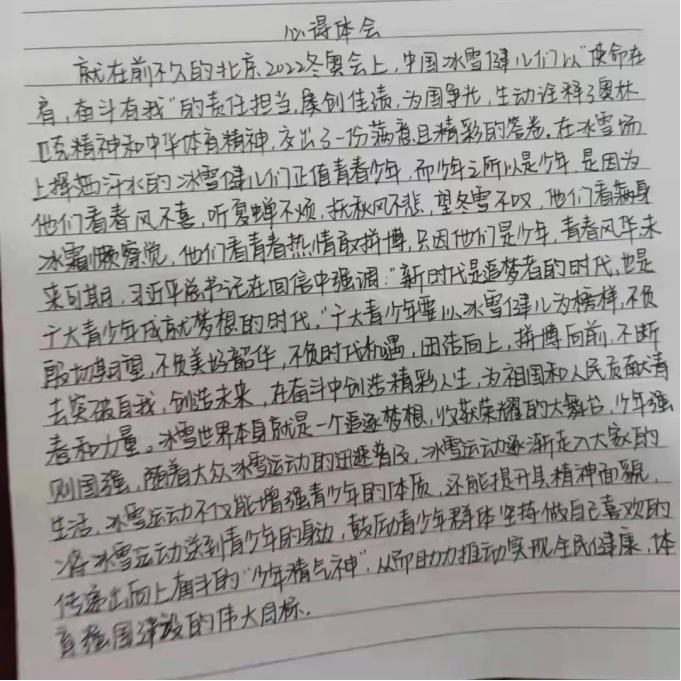 心得体会
就在前不久的北京2022冬奥会上，中国冰雪健儿们以“使命在
肩，奋斗有我”的责任担当，屡创佳绩，为国争光，生动诠释了奥林
匹克精神和中华体育精神，交出了一份满意且精彩的答卷。在冰雪场
上挥洒汗水的冰雪健儿们正值青春少年，而少年之所以是少年，是因为
他们看春风不喜，听夏蝉不烦，抚秋风不悲，望冬雪不叹，他们看满身
冰霜懒察觉，他们看青春热情敢拼博，只因他们是少年，青春风华，未
来可期，习近平总书记在回信中强调：“新时代是追梦者的时代，也是
广大青少年成就梦想的时代，“广大青少年要以冰雪健儿为榜样，不负
殷切期望，不负美好韶华，不负时代机遇，团结向上，拼博向前，不断
去突破自我，创造未来，在奋斗中创造精彩人生，为祖国和人民贡献青
春和力量。冰雪世界本身就是一个追逐梦想，收获荣耀的大舞台，少年强
则国强，随着大众冰雪运动的迅速普及，冰雪运动逐渐走入大家的
生活，冰雪运动不仅能增强青少年的体质，还能提升其精神面貌，
将冰雪运动送到青少年的身边，鼓励青少年群体坚持做自己喜欢的
传递出向上奋斗的“少年精气神”，从而助力推动实现全民健康，体
育强国建设的伟大目标.